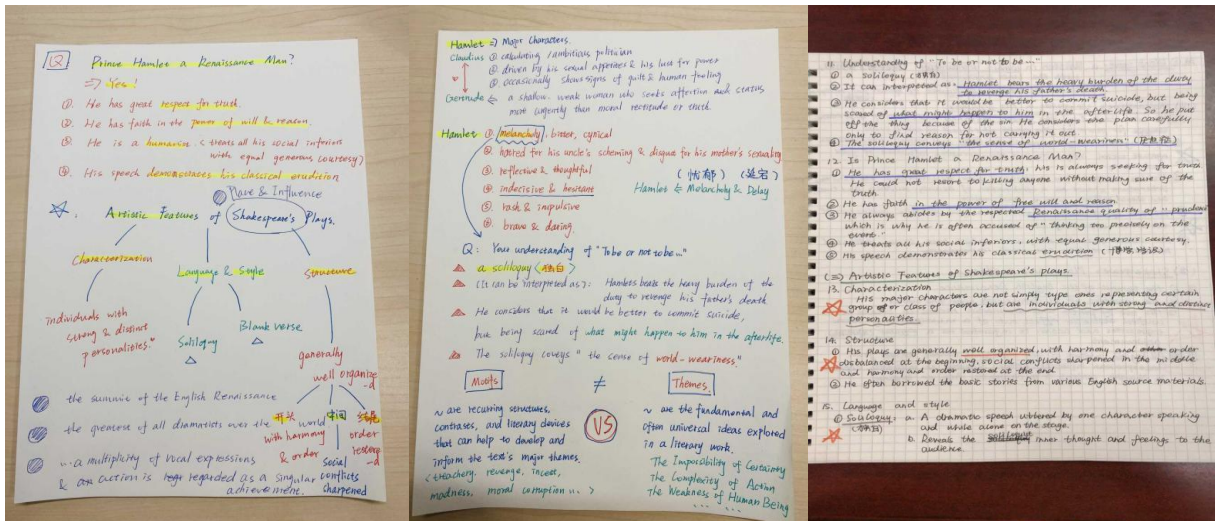 Q Prince Hamlet a Renaissance Man?
=> Yes!
①. He has great respect for truth.
②. He has faith in the power of will & reason.
③. He is a humanism (treats all his social inferiors
with equal generous courtesy)
④. His speech demonstrates his classical erudition
Place & Influence
Artistic Features of Shakespeare's Plays.
Characterization
Language & Style
Structure
individuals with
strong & distinct
personalities."
Soliloquy
Blank verse
generally
well organize
-d
the summit of the English Renaissance
the greatest of all dramatists over the world
开头
中间
结局
with harmony
& order
order
restore
-d
social
conflicts
sharpened
...a multiplicity of vocal expressions
& an action is regarded as a singular
achievement.
Hamlet => Major Characters.
Claudius ① calculating / ambitious politician
② driven by his sexual appetites & his lust for power
③ occasionally shows signs of guilt & human feeling
Gertrude <= a shallow, weak woman who seeks affection and status
more urgently than moral rectitude or truth.
Hamlet ① melancholy, bitter, cynical
② hatred for his uncle's scheming & disgue for his mother's sexuality
③ reflective & thoughtful
(忧郁) (延宕)
④ indecisive & hesitant
Hamlet <= Melancholy & Delay
⑤ rash & impulsive
⑥ brave & daring.
Q: Your understanding of "To be or not to be..."
a soliloquy <独白>
(It can be interpreted as): Hamlet bears the heavy burden of the
duty to revenge his father's death
He considers that it would be better to commit suicide,
but being scared of what might happen to him in the afterlife.
The soliloquy coveys "the sense of world-weariness."
Motifs ≠ Themes.
VS
~ are recurring structures,
contrasts, and literary devices
that can help to develop and
inform the text's major themes.
(treachery, revenge, incest,
madness, moral corruption ... >
~ are the fundamental and
often universal ideas explored
in a literary work.
The Impossibility of Certainty
The Complexity of Action
The Weakness of Human Being
... ...
11. Understanding of "To be or not to be..."
① a soliloquy (独白)
② It can interpreted as: Hamlet bears the heavy burden of the duty
to revenge his father's death.
③ He considers that it would be better to commit suicide, but being
scared of what might happen to him in the afterlife. So he put
off the thing because of the sin. He considers the plan carefully
only to find reason for not carrying it out
④ The soliloquy conveys "the sense of world-weariness"
12. Is Prince Hamlet a Renaissance Man?
① He has great respect for truth: his is always seeking for truth
He could not resort to killing anyone without making sure of the
truth.
② He has faith in the power of free will and reason
③ He always abides by the respected Renaissance quality of "prudence"
which is why he is often accused of "thinking too precisely on the
event."
④ He treats all his social inferiors, with equal generous courtesy.
⑤ His speech demonstrates his classical erudition
(二) Artistic Features of Shakespeare's plays.
13. Characterization
His major characters are not simply type ones representing certain
group or class of people, but are individuals with strong and distinct
personalities.
14. Structure
① His plays are generally well organized, with harmony and order
disbalanced at the beginning, social conflicts sharpened in the middle
and harmony and order restored at the end.
② He often borrowed the basic stories from various English source materials.
15. Language and style
① Soliloquy: a. A dramatic speech uttered by one character speaking
(独白) and while alone on the stage.
b. Reveals the inner thought and feelings to the
audience.